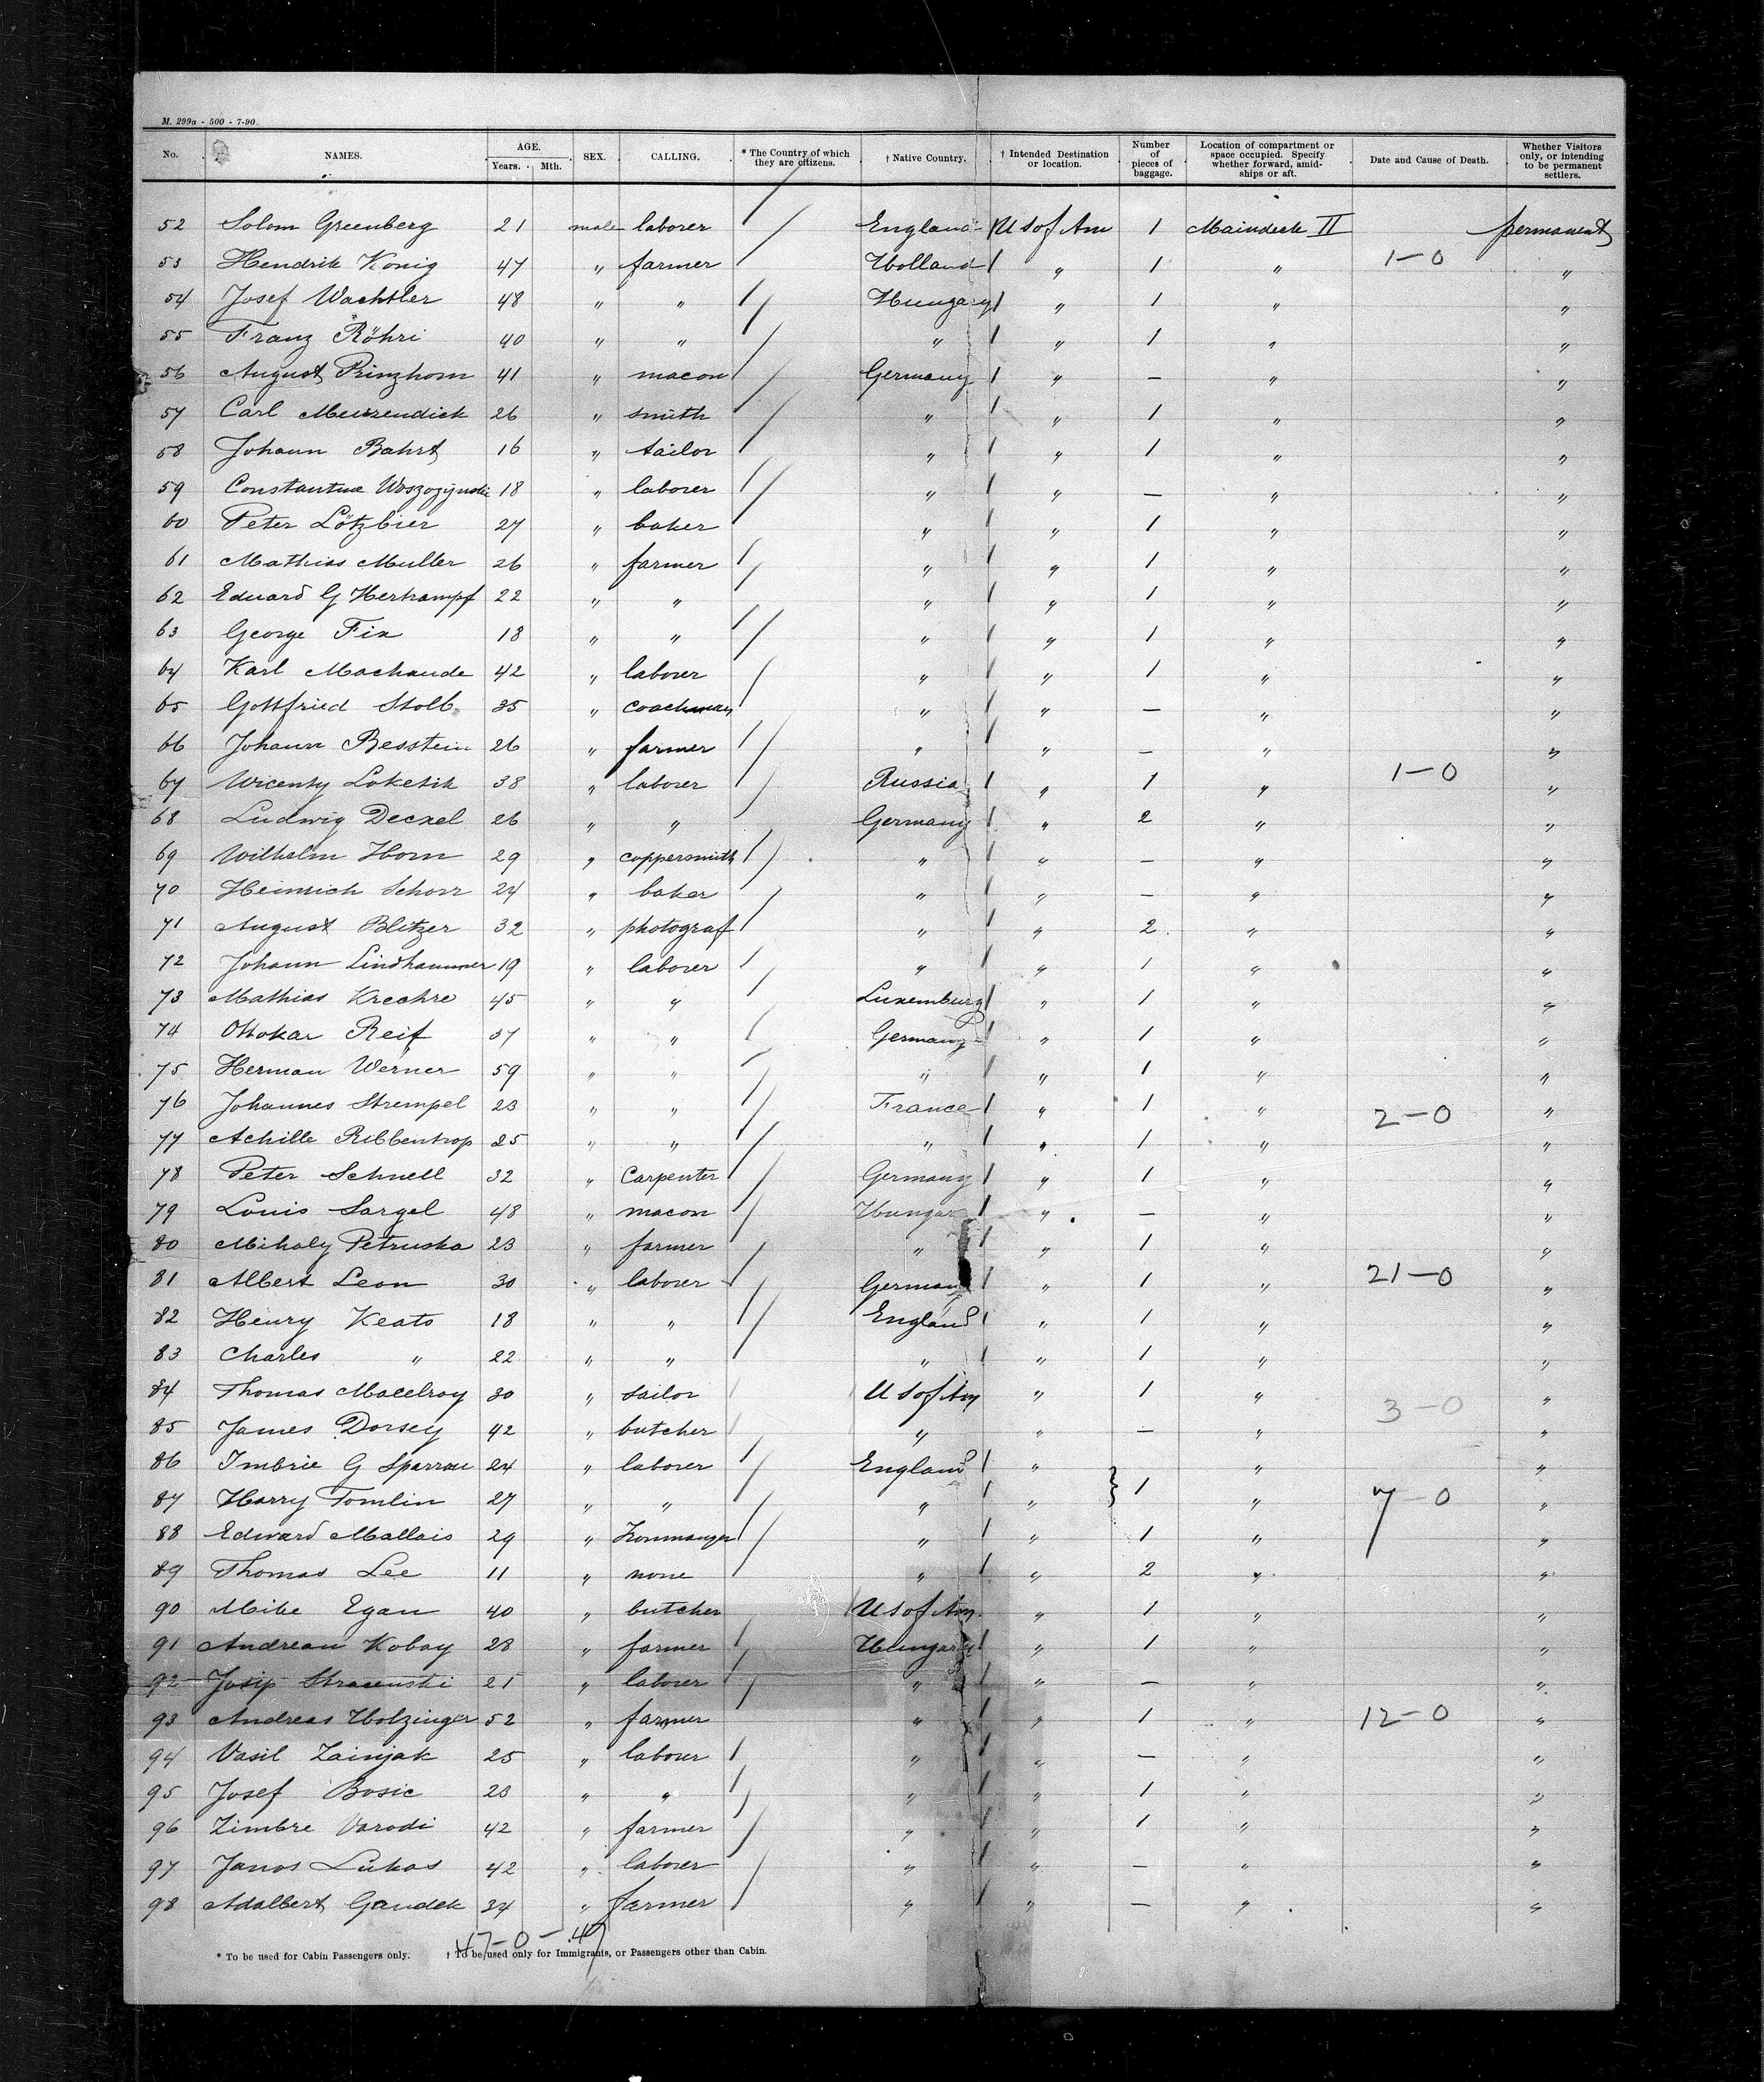 M. 299a - 500 - 7-90.
No. NAMES. AGE. Years. Mth. SEX. CALLING. * The Country of which they are citizens. † Native Country. † Intended Destination or location. Number of pieces of baggage. Location of compartment or space occupied. Specify whether forward, amidships or aft. Date and Cause of Death. Whether Visitors only, or intending to be permanent settlers.
52 Solom Greenberg 21 male laborer England U S of Am 1 Maindeck II permanent
53 Hendrik Konig 47 " farmer Holland " 1 " 1-0 "
54 Josef Wachtler 48 " " Hungary " 1 " "
55 Franz Röhri 40 " " " " 1 " "
56 August Prinzhorn 41 " macon Germany " — " "
57 Carl Meurendick 26 " smith " " 1 " "
58 Johann Bahrt 16 " tailor " " 1 " "
59 Constantine 18 " laborer " " — " "
60 Peter Lötzbier 27 " baker " " 1 " "
61 Mathias Muller 26 " farmer " " 1 " "
62 Eduard G Herkampf 22 " " " " 1 " "
63 George Fix 18 " " " " 1 " "
64 Karl Machande 42 " laborer " " 1 " "
65 Gottfried Stolb 35 " coachman " " — " "
66 Johann Besstein 26 " farmer " " — " "
67 Wicenty Loketik 38 " laborer Russia " 1 " 1-0 "
68 Ludwig Deckel 26 " " Germany " 2 " "
69 Wilhelm Horn 29 " coppersmith " " — " "
70 Heinrich Schorr 24 " baker " " — " "
71 August Blitzer 32 " photograf " " 2 " "
72 Johann Lindhammer 19 " laborer " " 1 " "
73 Mathias Krechre 45 " " Luxemburg " 1 " "
74 Ottokar Reif 37 " " Germany " 1 " "
75 Herman Werner 59 " " " " 1 " "
76 Johannes Strempel 23 " " France " 1 " 2-0 "
77 Achille Ribbentrop 25 " " " " 1 " "
78 Peter Schnell 32 " Carpenter Germany " 1 " "
79 Louis Sargel 48 " macon Hungar " — " "
80 Mihaly Petruska 23 " farmer " " 1 " "
81 Albert Leon 30 " laborer Germany " 1 " 21-0 "
82 Henry Keats 18 " " England " 1 " "
83 Charles " 22 " " " " 1 " "
84 Thomas Macelroy 30 " sailor U S of Am " 1 " 3-0 "
85 James Dorsey 42 " butcher " " — " "
86 Imbrie G Sparrow 24 " laborer England " } " "
87 Harry Tomlin 27 " " " " 1 " 7-0 "
88 Edward Mallais 29 " Ironmanger " " 1 " "
89 Thomas Lee 11 " none " " 2 " "
90 Mike Egan 40 " butcher U S of Am. " 1 " "
91 Andreau Kobay 28 " farmer Hungary " 1 " "
92 Josip Stracenski 21 " laborer " " — " "
93 Andreas Holzinger 52 " farmer " " 1 " 12-0 "
94 Vasil Zainjak 25 " laborer " " — " "
95 Josef Bosic 23 " " " " 1 " "
96 Zimbre Varodi 42 " farmer " " 1 " "
97 Janos Lukas 42 " laborer " " — " "
98 Adalbert Gaudek 34 " farmer " " — " "
47-0-47
* To be used for Cabin Passengers only. † To be used only for Immigrants, or Passengers other than Cabin.